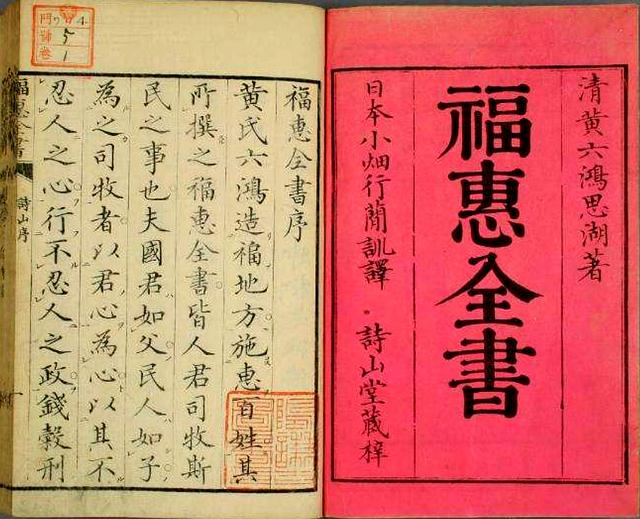 清黄六鴻思湖著
福惠全書
日本小畑行蕳訓譯 詩山堂藏梓
福惠全書序
黄氏六鴻造福地方施惠百姓其
所撰之福惠全書皆人君司牧斯
民之事也夫國君如父民人如子
為之司牧者以君心為心以其不
忍人之心行不忍人之政錢穀刑
福惠全書
詩山序
門
號
卷
5
1